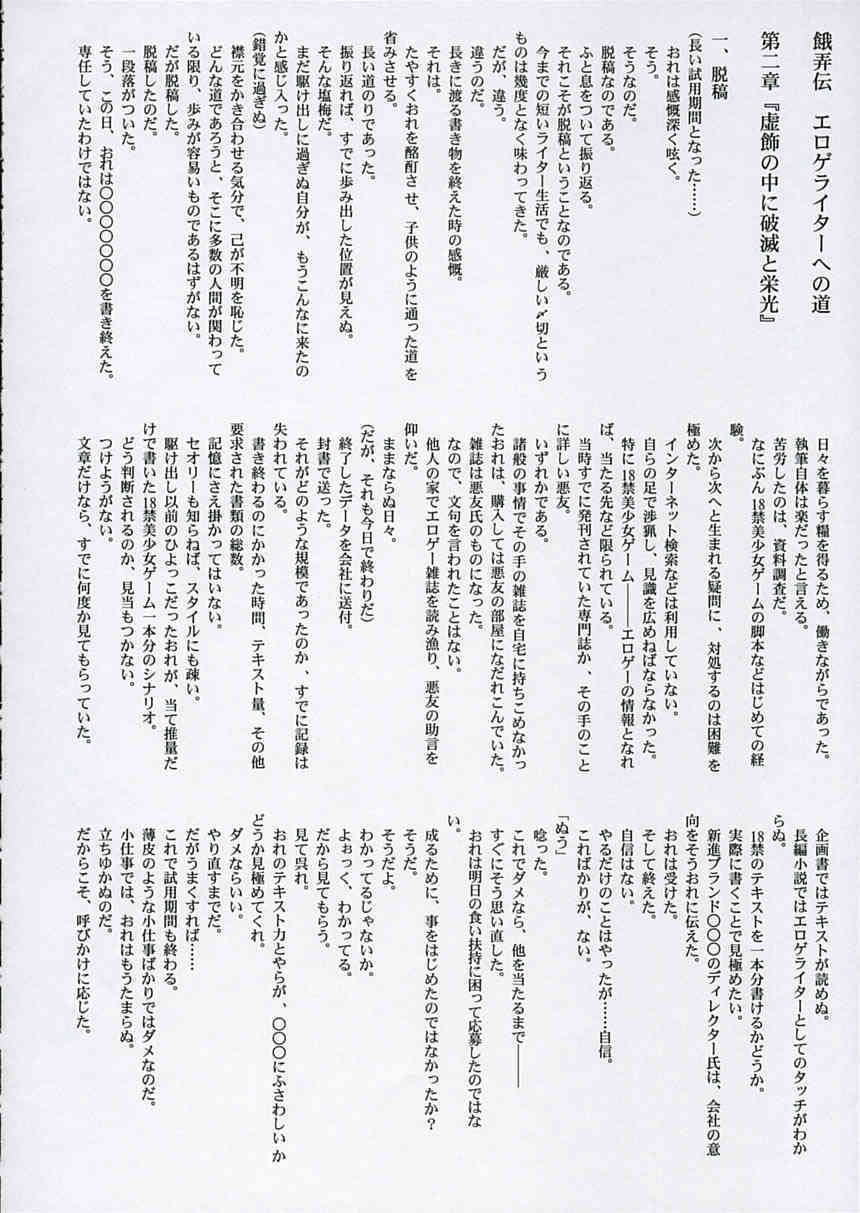 餓弄伝　エロゲライターへの道
第二章『虚飾の中に破滅と栄光』
一、脱稿
（長い試用期間となった……）
そう。
おれは感慨深く呟く。
そうなのだ。
脱稿なのである。
ふと息をついて振り返る。
それこそが脱稿ということなのである。
今までの短いライター生活でも、厳しい〆切という
ものは幾度となく味わってきた。
だが、違う。
違うのだ。
長きに渡る書き物を終えた時の感慨。
それは。
たやすくおれを酩酊させ、子供のように通った道を
省みさせる。
長い道のりであった。
振り返れば、すでに歩み出した位置が見えぬ。
そんな塩梅だ。
まだ駆け出しに過ぎぬ自分が、もうこんなに来たの
かと感じ入った。
（錯覚に過ぎぬ）
襟元をかき合わせる気分で、己が不明を恥じた。
どんな道であろうと、そこに多数の人間が関わって
いる限り、歩みが容易いものであるはずがない。
だが脱稿した。
脱稿したのだ。
一段落がついた。
そう、この日、おれは〇〇〇〇〇〇〇を書き終えた。
専任していたわけではない。
日々を暮らす糧を得るため、働きながらであった。
執筆自体は楽だったと言える。
苦労したのは、資料調査だ。
なにぶん18禁美少女ゲームの脚本などはじめての経
験。
次から次へと生まれる疑問に、対処するのは困難を
極めた。
インターネット検索などは利用していない。
自らの足で渉猟し、見識を広めねばならなかった。
特に18禁美少女ゲーム――エロゲーの情報となれ
ば、当たる先など限られている。
当時すでに発刊されていた専門誌か、その手のこと
に詳しい悪友。
いずれかである。
諸般の事情でその手の雑誌を自宅に持ちこめなかっ
たおれは、購入しては悪友の部屋になだれこんでいた。
雑誌は悪友氏のものになった。
なので、文句を言われたことはない。
他人の家でエロゲー雑誌を読み漁り、悪友の助言を
仰いだ。
ままならぬ日々。
（だが、それも今日で終わりだ）
終了したデータを会社に送付。
封書で送った。
それがどのような規模であったのか、すでに記録は
失われている。
書き終わるのにかかった時間、テキスト量、その他
要求された書類の総数。
記憶にさえ掛かってはいない。
セオリーも知らねば、スタイルにも疎い。
駆け出し以前のひよっこだったおれが、当て推量だ
けで書いた18禁美少女ゲーム一本分のシナリオ。
どう判断されるのか、見当もつかない。
つけようがない。
文章だけなら、すでに何度か見てもらっていた。
企画書ではテキストが読めぬ。
長編小説ではエロゲライターとしてのタッチがわか
らぬ。
18禁のテキストを一本分書けるかどうか。
実際に書くことで見極めたい。
新進ブランド〇〇〇のディレクター氏は、会社の意
向をそうおれに伝えた。
おれは受けた。
そして終えた。
自信はない。
やるだけのことはやったが……自信。
こればかりが、ない。
「ぬう」
唸った。
これでダメなら、他を当たるまで――
すぐにそう思い直した。
おれは明日の食い扶持に困って応募したのではな
い。
成るために、事をはじめたのではなかったか？
そうだ。
そうだよ。
わかってるじゃないか。
よぉっく、わかってる。
だから見てもらう。
見て呉れ。
おれのテキスト力とやらが、〇〇〇にふさわしいか
どうか見極めてくれ。
ダメならいい。
やり直すまでだ。
だがうまくすれば……
これで試用期間も終わる。
薄皮のような小仕事ばかりではダメなのだ。
小仕事では、おれはもうたまらぬ。
立ちゆかぬのだ。
だからこそ、呼びかけに応じた。